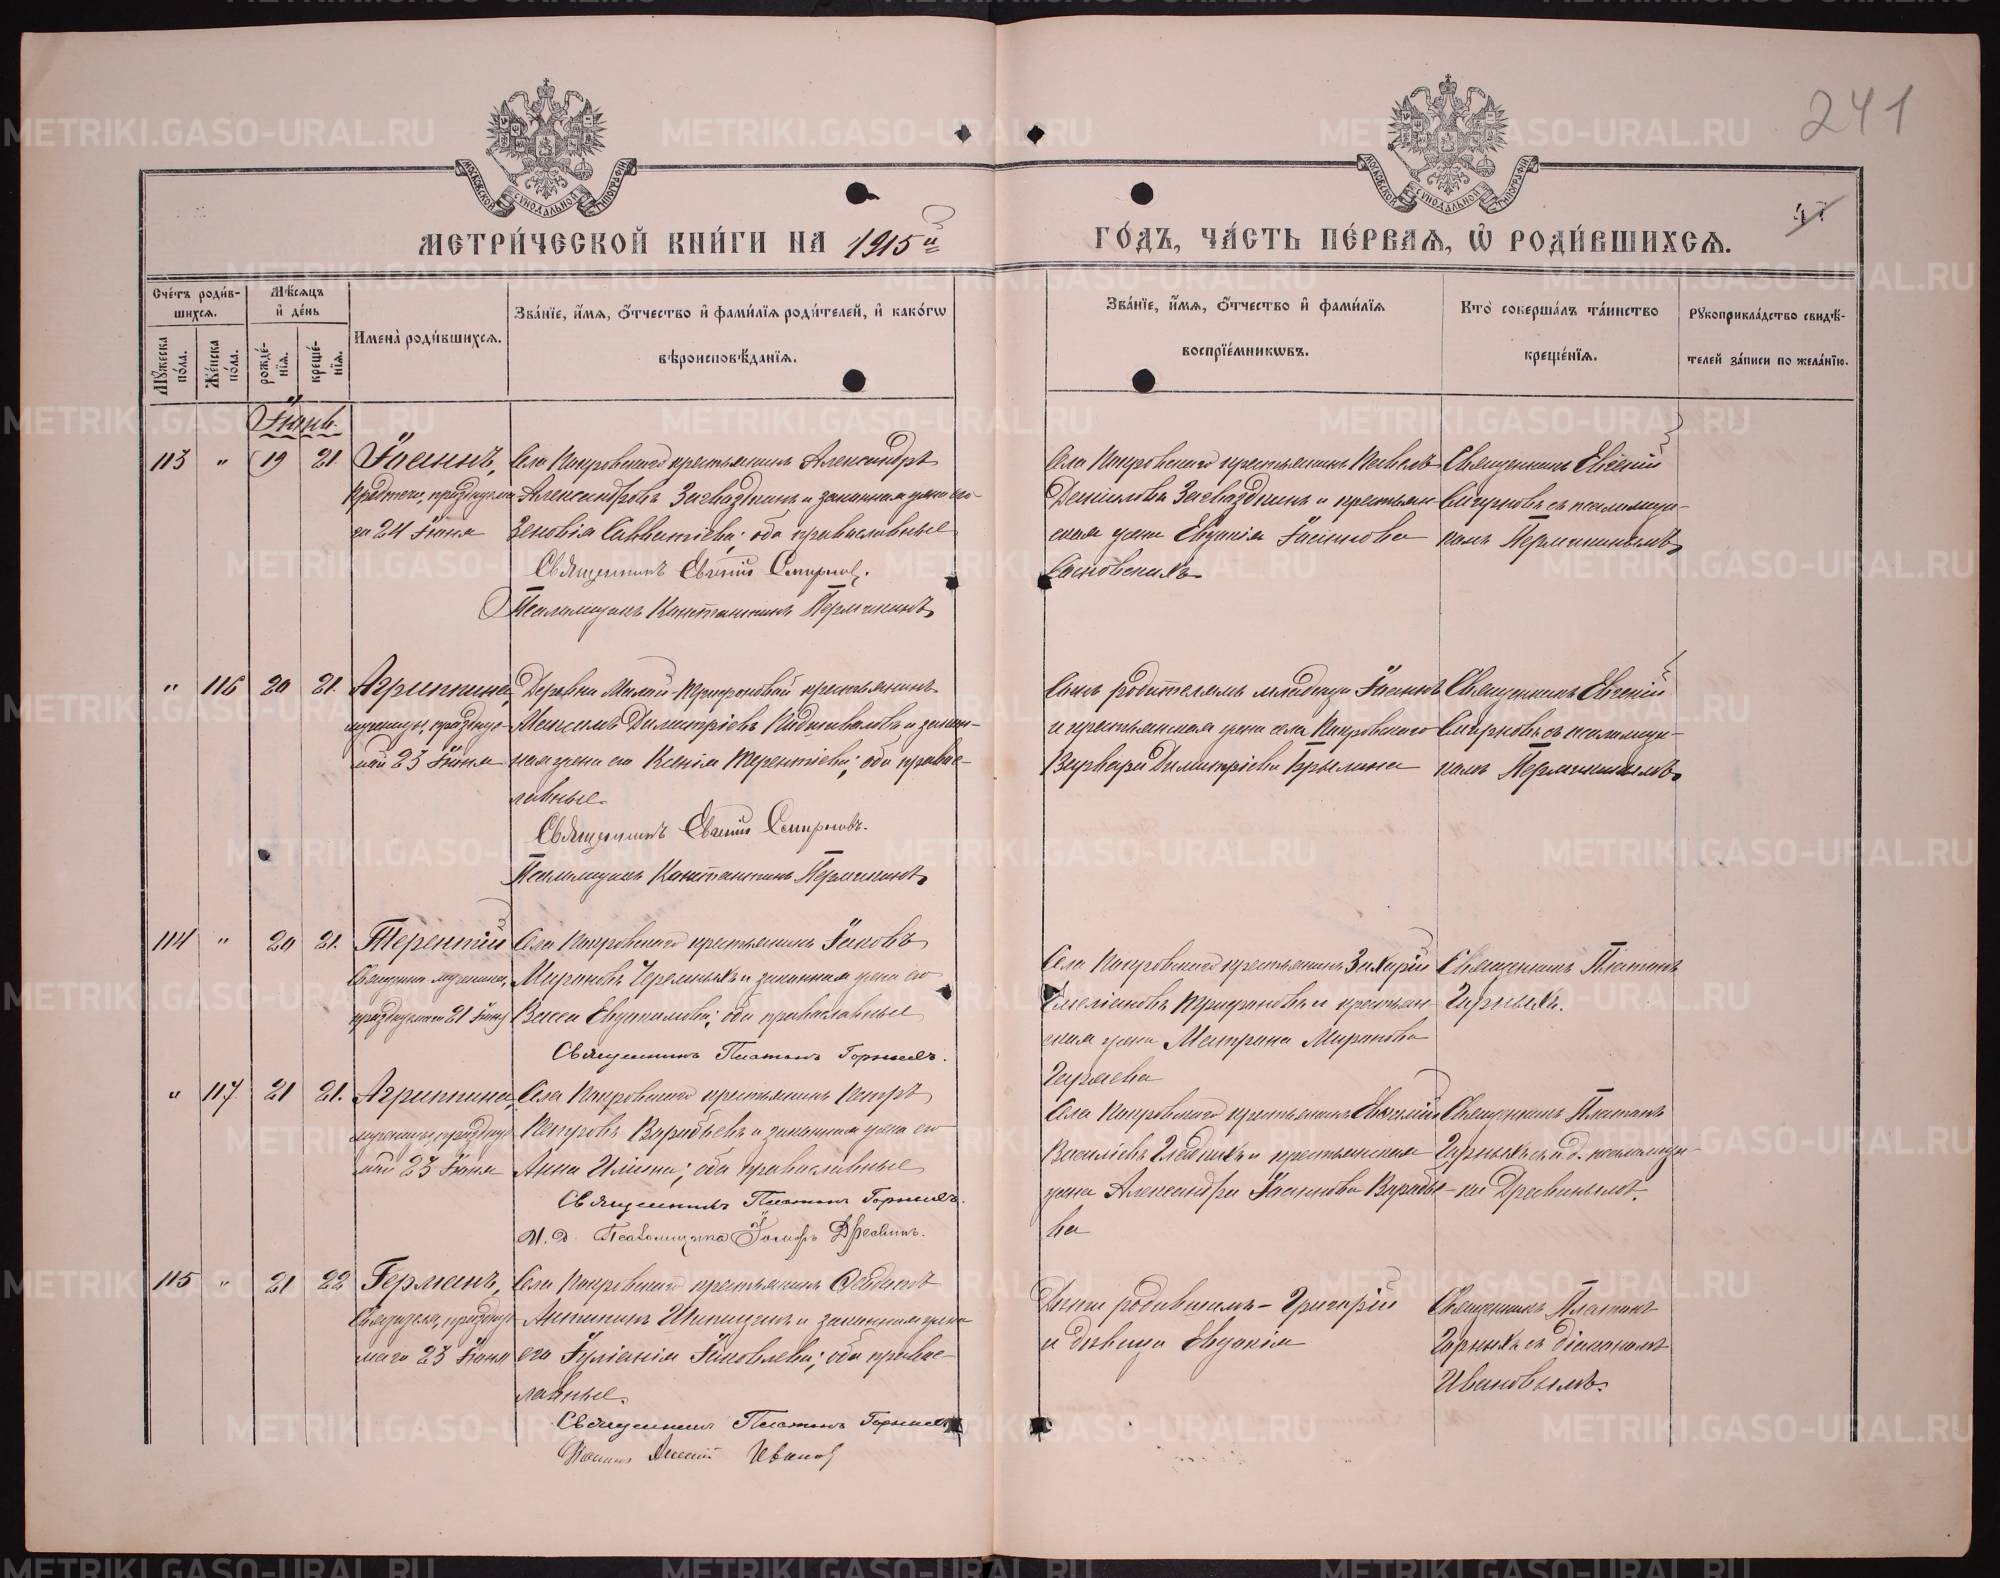 241
МОСКОВСКОЙ СѴНОДАЛЬНОЙ ТИПОГРАФІИ
МОСКОВСКОЙ СѴНОДАЛЬНОЙ ТИПОГРАФІИ
МЕТРИ́ЧЕСКОЙ КНИ́ГИ НА 1915й
ГО́ДЪ, ЧА́СТЬ ПЕ́РВАЯ, Ѽ РОДИ́ВШИХСЯ.
Сче́тъ роди́в-
шихся.
Мꙋ́жеска по́ла.
Же́нска по́ла.
Мѣ́сяцъ
и҆ де́нь
рожде́-
нїя.
креще́-
нїя.
Имена̀ роди́вшихся.
Зва́нїе, и҆́мя, ѻ҆́тчество и҆ фами́лїя роди́телей, и҆ како́гѡ
вѣроисповѣ́данїя.
Зва́нїе, и҆́мя, ѻ҆́тчество и҆ фами́лїя
воспрїе́мникѡвъ.
Кто̀ соверша́лъ та́инство
креще́нїя.
Рꙋкоприкла́дство свидѣ́-
телей за́писи по жела́нїю.
Іюнь.
113 " 19 21 Іоаннъ,
Крестит., празднуем.
ен 24 Іюня
Села Покровскаго крестьянинъ Александръ
Александровъ Загваздкинъ и законная жена его
Зеновія Савватіева; оба православные
Священникъ Евгеній Смирновъ.
Псаломщикъ Константинъ Пермикинъ
Села Покровскаго крестьянинъ
Даниловъ Загваздкинъ и крестьян-
ская жена Евдокія Іоаннова
Сосновскихъ
Священникъ Евгеній
Смирновъ съ псаломщи-
комъ Пермикинымъ
" 116 20 21. Агриппина,
мученицы, праздну-
мой 23 Іюня
Деревни Малой-Трифоновой крестьянинъ
Максимъ Димитріевъ Подковаловъ и закон-
ная жена его Ксенія Терентіева; оба право-
славные.
Священникъ Евгеній Смирновъ.
Псаломщикъ Константинъ Пермикинъ
Сынъ родителямъ младенца Іоаннъ
и крестьянская жена села Покровскаго
Варвара Димитріева Брылина
Священникъ Евгеній
Смирновъ съ псаломщи-
комъ Пермикинымъ
114 " 20 21. Терентій
мученика,
празднуемаго 21 Іюня
Села Покровскаго крестьянинъ Іаковъ
Мироновъ Черемныхъ и законная жена его
Васса Евдокимова; оба православные
Священникъ Платонъ Горныхъ.
Села Покровскаго крестьянинъ Захарій
Емеліановъ Трифоновъ и крестьян-
ская жена Матрона Миронова
Священникъ Платонъ
Горныхъ.
" 117. 21 21. Агриппина,
мученицы, праздну-
мой 23 Іюня
Села Покровскаго крестьянинъ Петръ
Петровъ Воробьевъ и законная жена его
Анна Ильина; оба православные
Священникъ Платонъ Горныхъ.
И. д. Псаломщика
Села Покровскаго крестьянинъ
Василіевъ Гладкихъ и крестьянская
жена Александра Іоаннова Воробье-
ва
Священникъ Платонъ
Горныхъ съ и.д. псаломщи-
ка
115 " 21 22 Германъ,
праздну-
маго 23 Іюня
Села Покровскаго крестьянинъ
Антипинъ Шипицинъ и законная жена
его Іуліанія Іаковлева; оба право-
славные.
Священникъ Платонъ Горныхъ
Ивановъ
Дѣти родившимъ - Григорій
и дѣвица Евдокія
Священникъ Платонъ
Горныхъ съ діакономъ
Ивановымъ.
METRIKI.GASO-URAL.RU